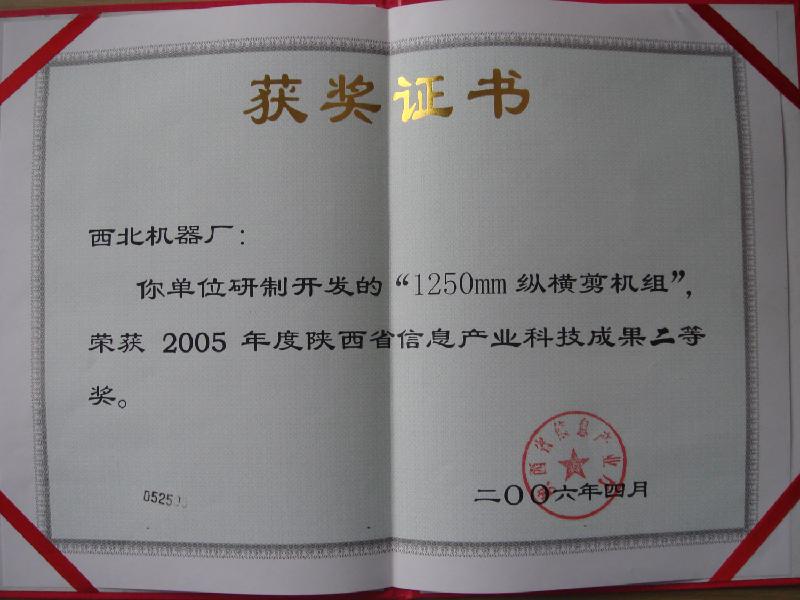 获奖证书
西北机器厂：
你单位研制开发的“1250mm 纵横剪机组”，
荣获 2005 年度陕西省信息产业科技成果二等
奖。
陕西省信息产业厅
二〇〇六年四月